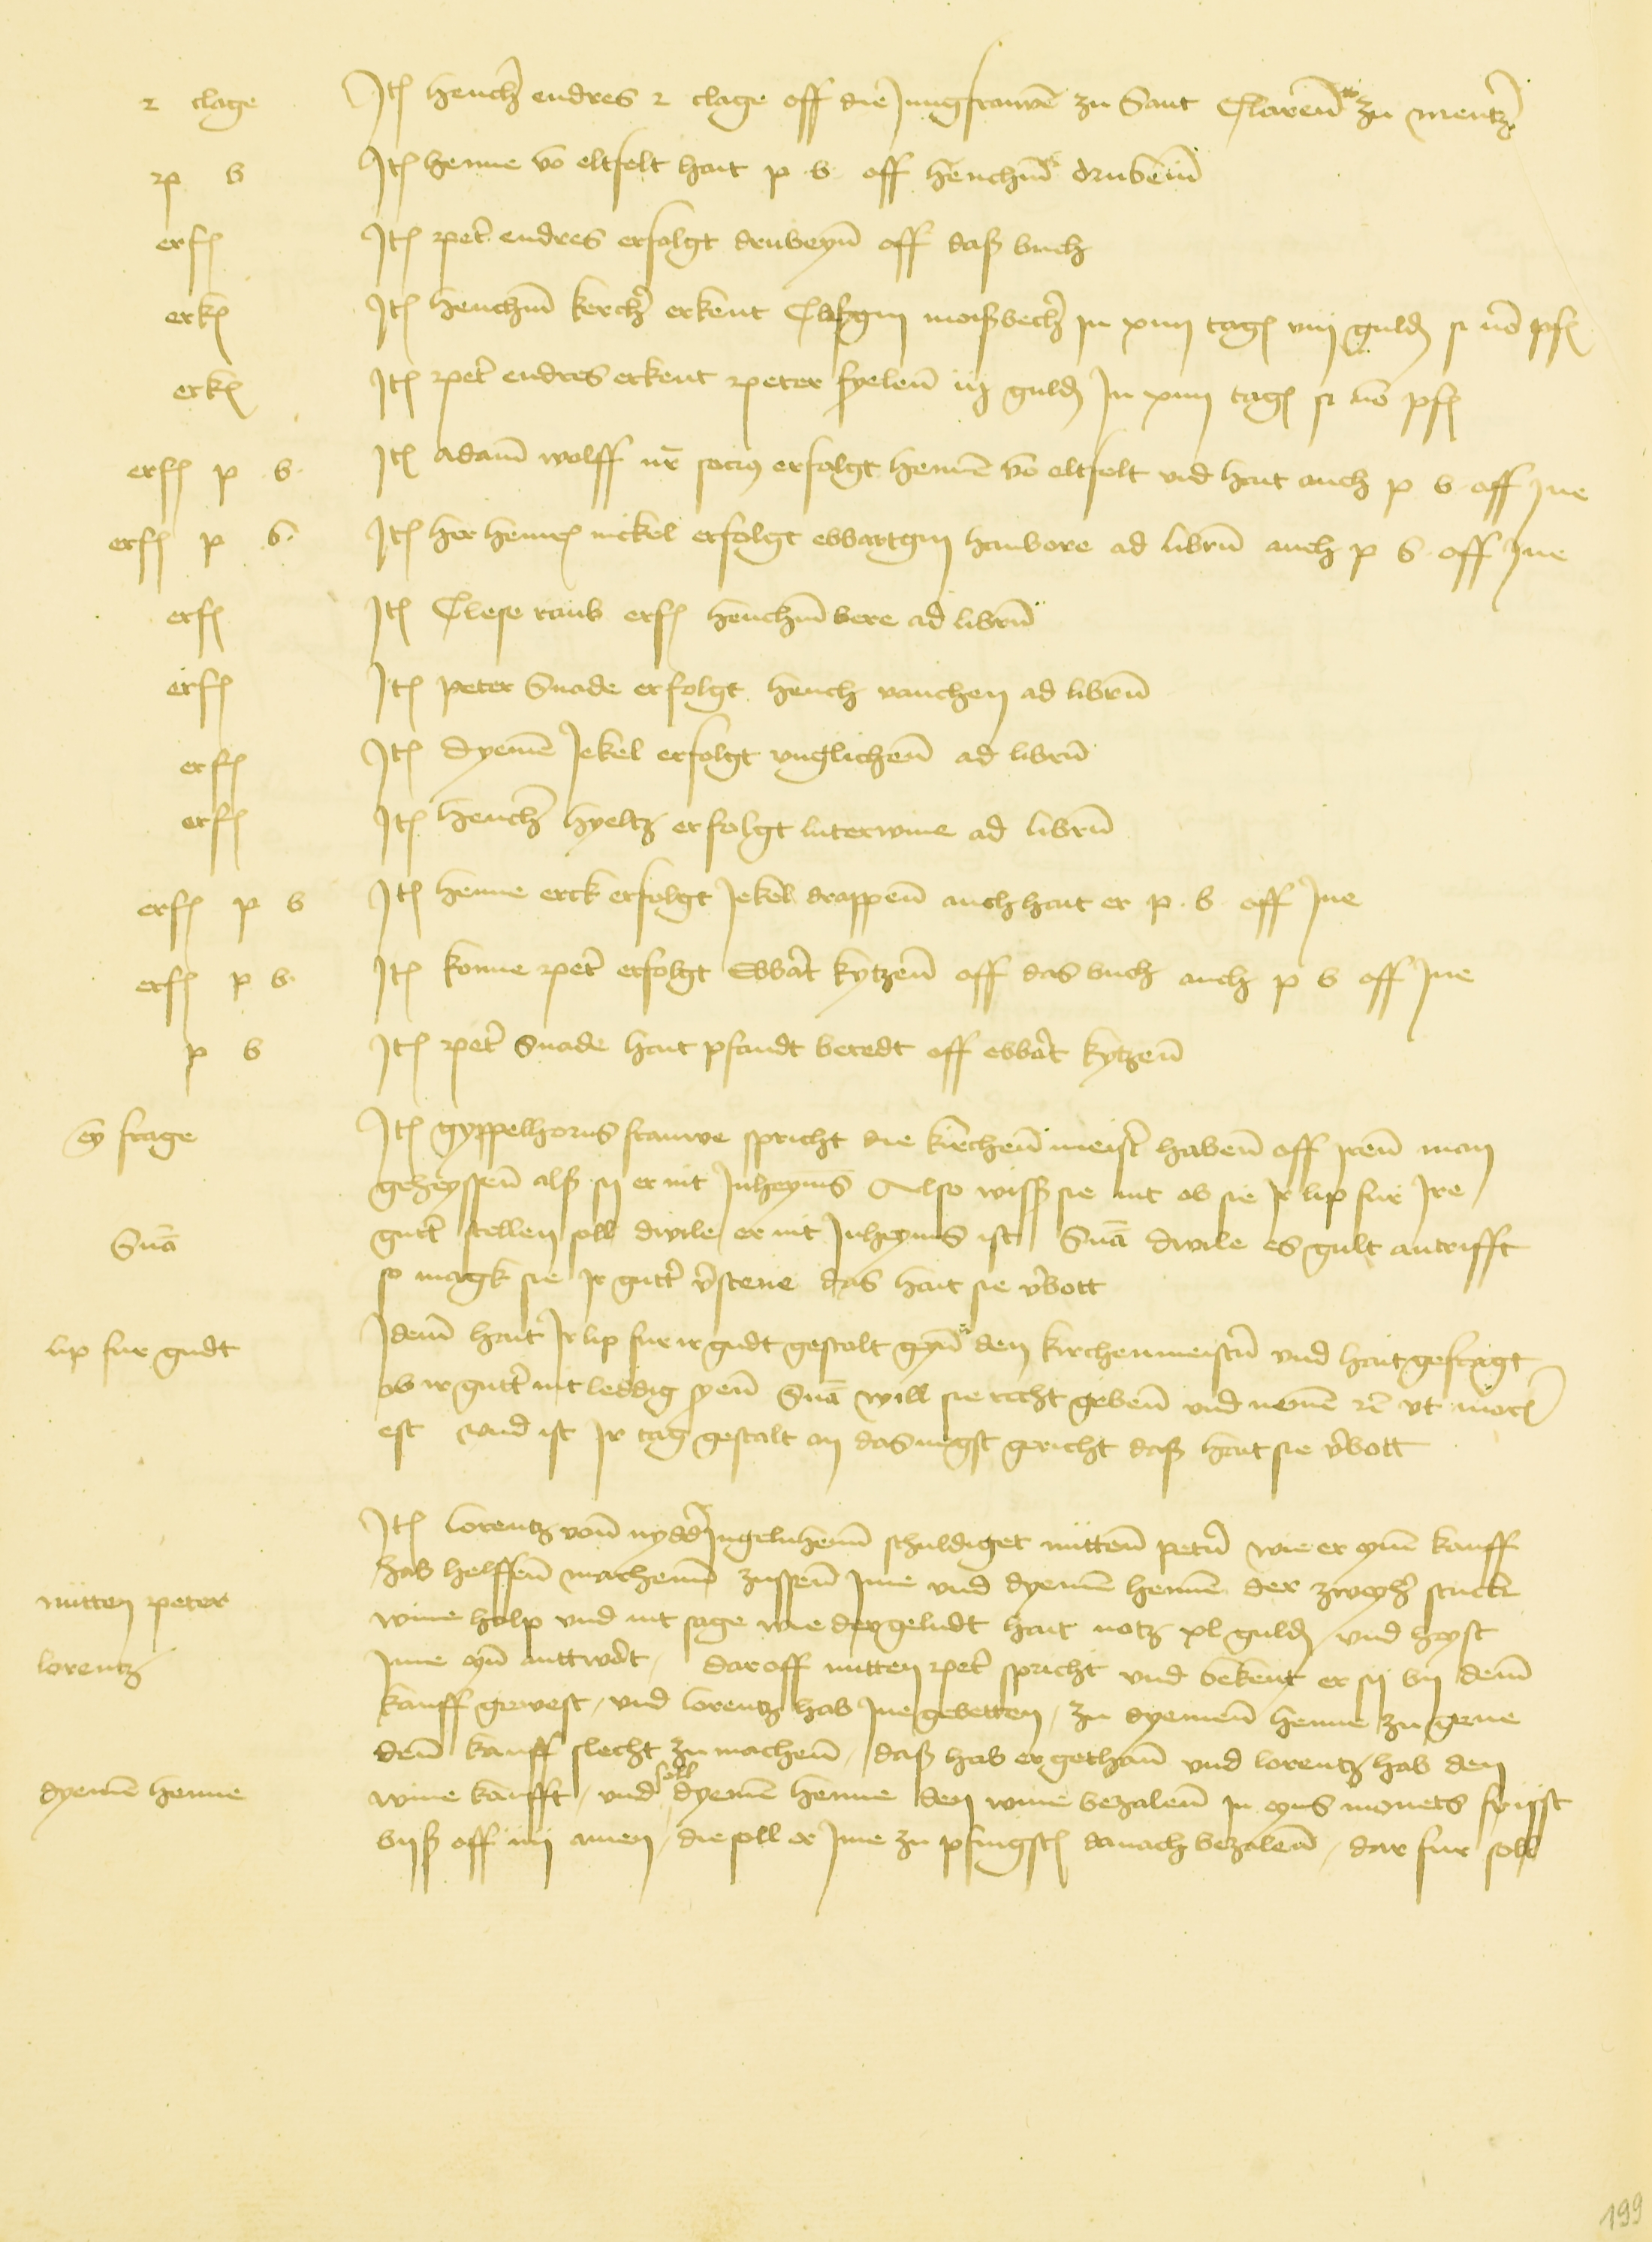 2 clage Itē hench̄ endres 2 clage off die Jungfrauwē zu Sant Clarē zu mentz
p b Itē henne vō eltfelt hait p b off henchī drubenn̄
erf Itē pet̄ endres erfolgt drubeyn̄ off daß buch
erk Itē henchī kerch̄ erkent Clesgin moißbech̄ in xiiii tag viii guld si nō pf
erk Itē pet̄ endres erkent peter fyelen̄ iii guld In xiiii tag si nō pf
erf p b Itē adam̄ wolff nr̄ socius erfolgt hennē vō eltfelt vnd hait auch p b off Ine
erf p b Itē her heinr nickel erfolgt ebbartgin haubore ad librū auch p b off Ine
erf Itē Clese raub erf henchī bere ad librū
erf Itē peter Snade erfolgt hench rauchen ad librū
erf Itē dyemē Jekel erfolgt vnglichen̄ ad librū
erf Itē hench̄ hyeltz erfolgt luterwine ad librū
erf p b Itē henne erck erfolgt Jekel drappen̄ auch hait er p b off Ine
erf p b Itē konne pet̄ erfolgt Ebbart̄ kytzen̄ off das buch auch p b off Ine
p b Itē pet̄ Snade hait pfandt beredt off ebbart̄ kytzen̄
ey frage Itē gyppelhorns frauwe spricht die kirchen̄ meist̄ haben̄ off iren̄ man
geheyssen̄ alß sij er nit Inheyms Also wiß sie nit ob sie Ir lip fur Ire
gutt̄ stellen soll dwile er nit Inheyms ist
Sn̄a Sn̄a dwile es gult antrifft
so magk sie Ir gutt̄ v̄stene das hait sie v̄bott
lip fur gudt Idem̄ hait Ir lip fur ir gudt gestalt geyn̄ den kirchenmeist̄n vnd hait gefragt
ob ir gutt̄ nit leddig syen̄ Sn̄a will sie recht geben̄ vnd nemē rē vt mor
est vnd ist Ir tag gestalt an das negst gericht daß hait sie v̄bott
Itē lorentz von̄ nydd̄ Ingelnheim̄ schuldiget nutten̄ pet̄n wie er eynē kauff
hab helffen̄ machenn̄ zussen̄ Ime vnd dyemē hennē der zweyh̄ stuck
nutten peter wine halp vnd nit sage wie der geludt hait notz xl guld vnd heyst
lorentz Ime eyn̄ anttwort, daroff nutten pet̄ spricht vnd bekent er sij by dem̄
kauff gewest, vnd lorentz hab Ine gebetten, zu dyemen̄ henne zu gene
den̄ kauff slecht zu machen̄, daß hab er gethan̄ vnd lorentz hab den
dyemē henne wine kaufft, vnd soll dyemē henne den wine bezalen̄ in eyns monets frisst
byß off iiii amen, die soll er Ime zu pfingst danach bezalen̄, dar fur soll
199